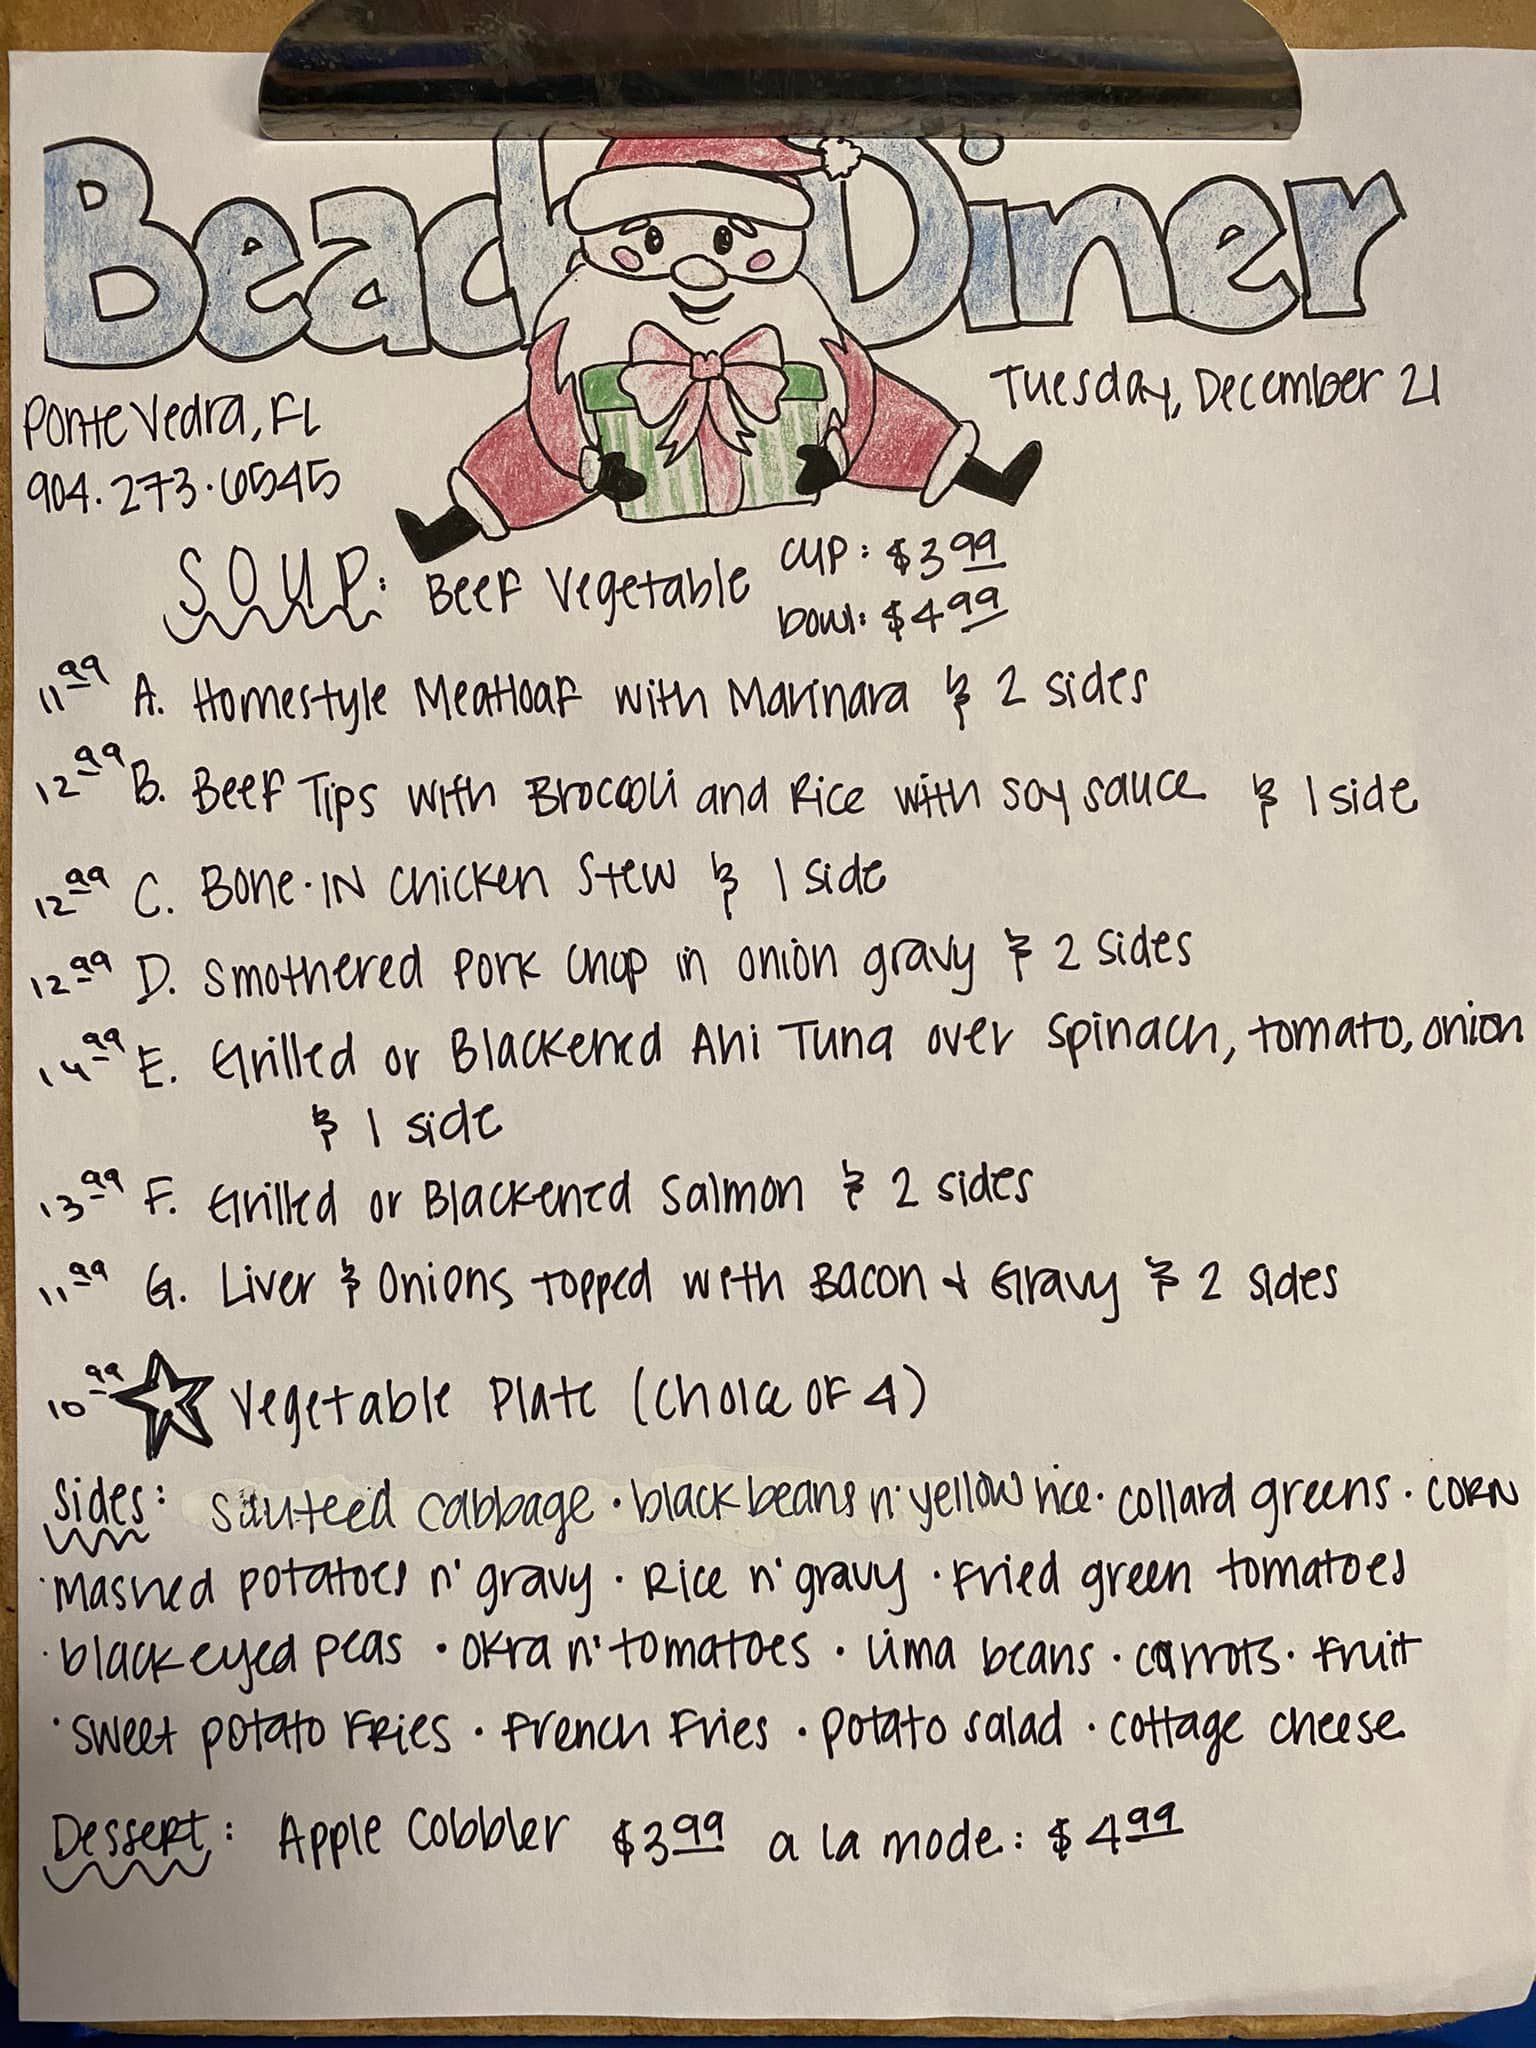 Beach Diner
Ponte Vedra, FL
904.273.6545
Tuesday, December 21
SOUP: Beef Vegetable
cup: $3.99
bowl: $4.99
11.99 A. Homestyle Meatloaf with Marinara & 2 sides
12.99 B. Beef Tips with Broccoli and Rice with soy sauce & 1 side
12.99 C. Bone-IN Chicken Stew & 1 side
12.99 D. Smothered Pork Chop in onion gravy & 2 sides
14.99 E. Grilled or Blackened Ahi Tuna over spinach, tomato, onion
& 1 side
13.99 F. Grilled or Blackened Salmon & 2 sides
11.99 G. Liver & Onions topped with Bacon & Gravy & 2 sides
10.99 Vegetable Plate (choice of 4)
Sides: sauteed cabbage · black beans n' yellow rice · collard greens · corn
· mashed potatoes n' gravy · Rice n' gravy · fried green tomatoes
· black eyed peas · okra n' tomatoes · lima beans · carrots · fruit
· sweet potato fries · french fries · potato salad · cottage cheese
Dessert: Apple Cobbler $3.99 a la mode: $4.99